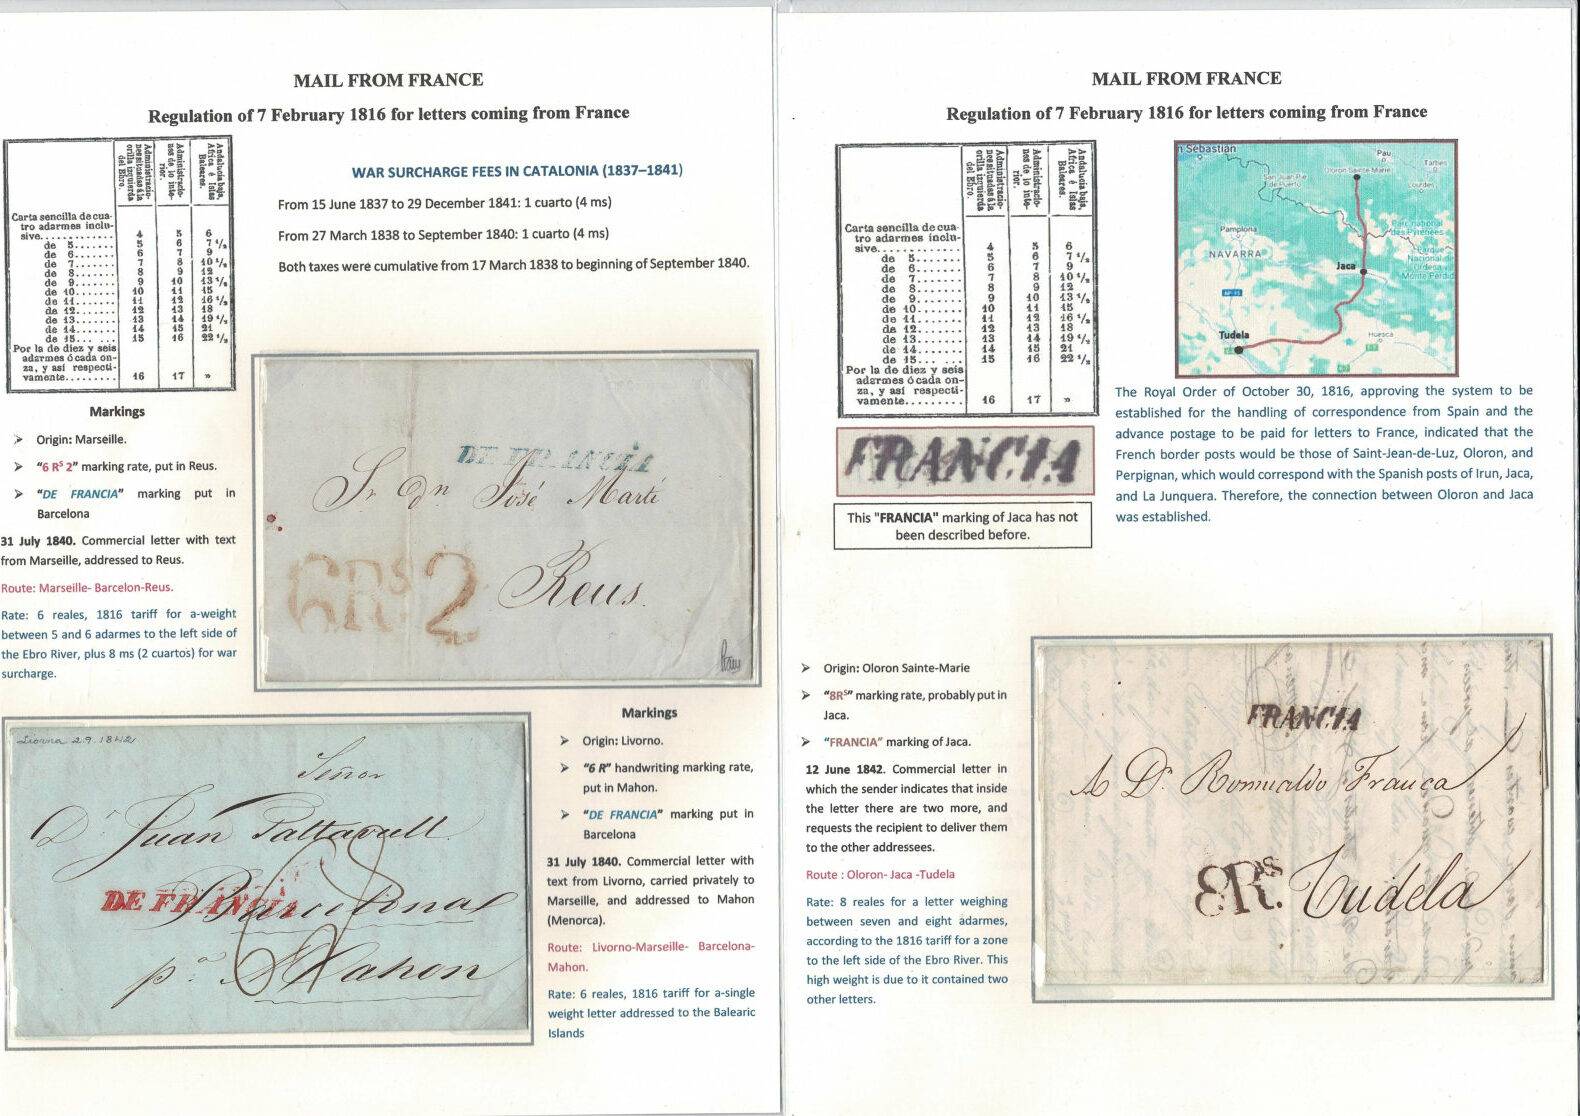 MAIL FROM FRANCE
Regulation of 7 February 1816 for letters coming from France
Administraciones situadas á la orilla izquierda del Ebro.
Administraciones de lo interior.
Andalucía baja, Africa é Islas Baleares.
Carta sencilla de cua-
tro adarmes inclu-
sive............ 4 5 6
de 5....... 5 6 7 1/2
de 6....... 6 7 9
de 7....... 7 8 10 1/2
de 8....... 8 9 12
de 9....... 9 10 13 1/2
de 10....... 10 11 15
de 11....... 11 12 16 1/2
de 12....... 12 13 18
de 13....... 13 14 19 1/2
de 14....... 14 15 21
de 15... ... 15 16 22 1/2
Por la de diez y seis
adarmes ó cada on-
za, y así respecti-
vamente......... 16 17 »
WAR SURCHARGE FEES IN CATALONIA (1837–1841)
From 15 June 1837 to 29 December 1841: 1 cuarto (4 ms)
From 27 March 1838 to September 1840: 1 cuarto (4 ms)
Both taxes were cumulative from 17 March 1838 to beginning of September 1840.
Markings
➢ Origin: Marseille.
➢ "6 RS 2" marking rate, put in Reus.
➢ "DE FRANCIA" marking put in
Barcelona
31 July 1840. Commercial letter with text
from Marseille, addressed to Reus.
Route: Marseille- Barcelon-Reus.
Rate: 6 reales, 1816 tariff for a-weight
between 5 and 6 adarmes to the left side of
the Ebro River, plus 8 ms (2 cuartos) for war
surcharge.
DE FRANCIA
Sr. Dn José Martí
6RS 2
Reus.
Liorna 2.9.1842
Señor
Dn Juan Taltavull
DE FRANCIA
Barcelona
pa Mahon
Markings
➢ Origin: Livorno.
➢ "6 R" handwriting marking rate,
put in Mahon.
➢ "DE FRANCIA" marking put in
Barcelona
31 July 1840. Commercial letter with
text from Livorno, carried privately to
Marseille, and addressed to Mahon
(Menorca).
Route: Livorno-Marseille- Barcelona-
Mahon.
Rate: 6 reales, 1816 tariff for a-single
weight letter addressed to the Balearic
Islands
MAIL FROM FRANCE
Regulation of 7 February 1816 for letters coming from France
Administraciones situadas á la orilla izquierda del Ebro.
Administraciones de lo interior.
Andalucía baja, Africa é Islas Baleares.
Carta sencilla de cua-
tro adarmes inclu-
sive............ 4 5 6
de 5....... 5 6 7 1/2
de 6....... 6 7 9
de 7....... 7 8 10 1/2
de 8....... 8 9 12
de 9....... 9 10 13 1/2
de 10....... 10 11 15
de 11....... 11 12 16 1/2
de 12....... 12 13 18
de 13....... 13 14 19 1/2
de 14....... 14 15 21
de 15....... 15 16 22 1/2
Por la de diez y seis
adarmes ó cada on-
za, y así respecti-
vamente......... 16 17 »
n Sebastián
Pau
Tarbes
San Juan Pie
de Puerto
Oloron Sainte Marie
Lourdes
Pamplona
NAVARRA
Parc national
des Pyrénées
Parque
Nacional de
Ordesa y
Monte Perdid
Jaca
AP-15
Tudela
Huesca
FRANCIA
This "FRANCIA" marking of Jaca has not
been described before.
The Royal Order of October 30, 1816, approving the system to be
established for the handling of correspondence from Spain and the
advance postage to be paid for letters to France, indicated that the
French border posts would be those of Saint-Jean-de-Luz, Oloron, and
Perpignan, which would correspond with the Spanish posts of Irun, Jaca,
and La Junquera. Therefore, the connection between Oloron and Jaca
was established.
➢ Origin: Oloron Sainte-Marie
➢ "8RS" marking rate, probably put in
Jaca.
➢ "FRANCIA" marking of Jaca.
12 June 1842. Commercial letter in
which the sender indicates that inside
the letter there are two more, and
requests the recipient to deliver them
to the other addressees.
Route : Oloron- Jaca -Tudela
Rate: 8 reales for a letter weighing
between seven and eight adarmes,
according to the 1816 tariff for a zone
to the left side of the Ebro River. This
high weight is due to it contained two
other letters.
FRANCIA
A Dn Romualdo Franca
8RS. Tudela